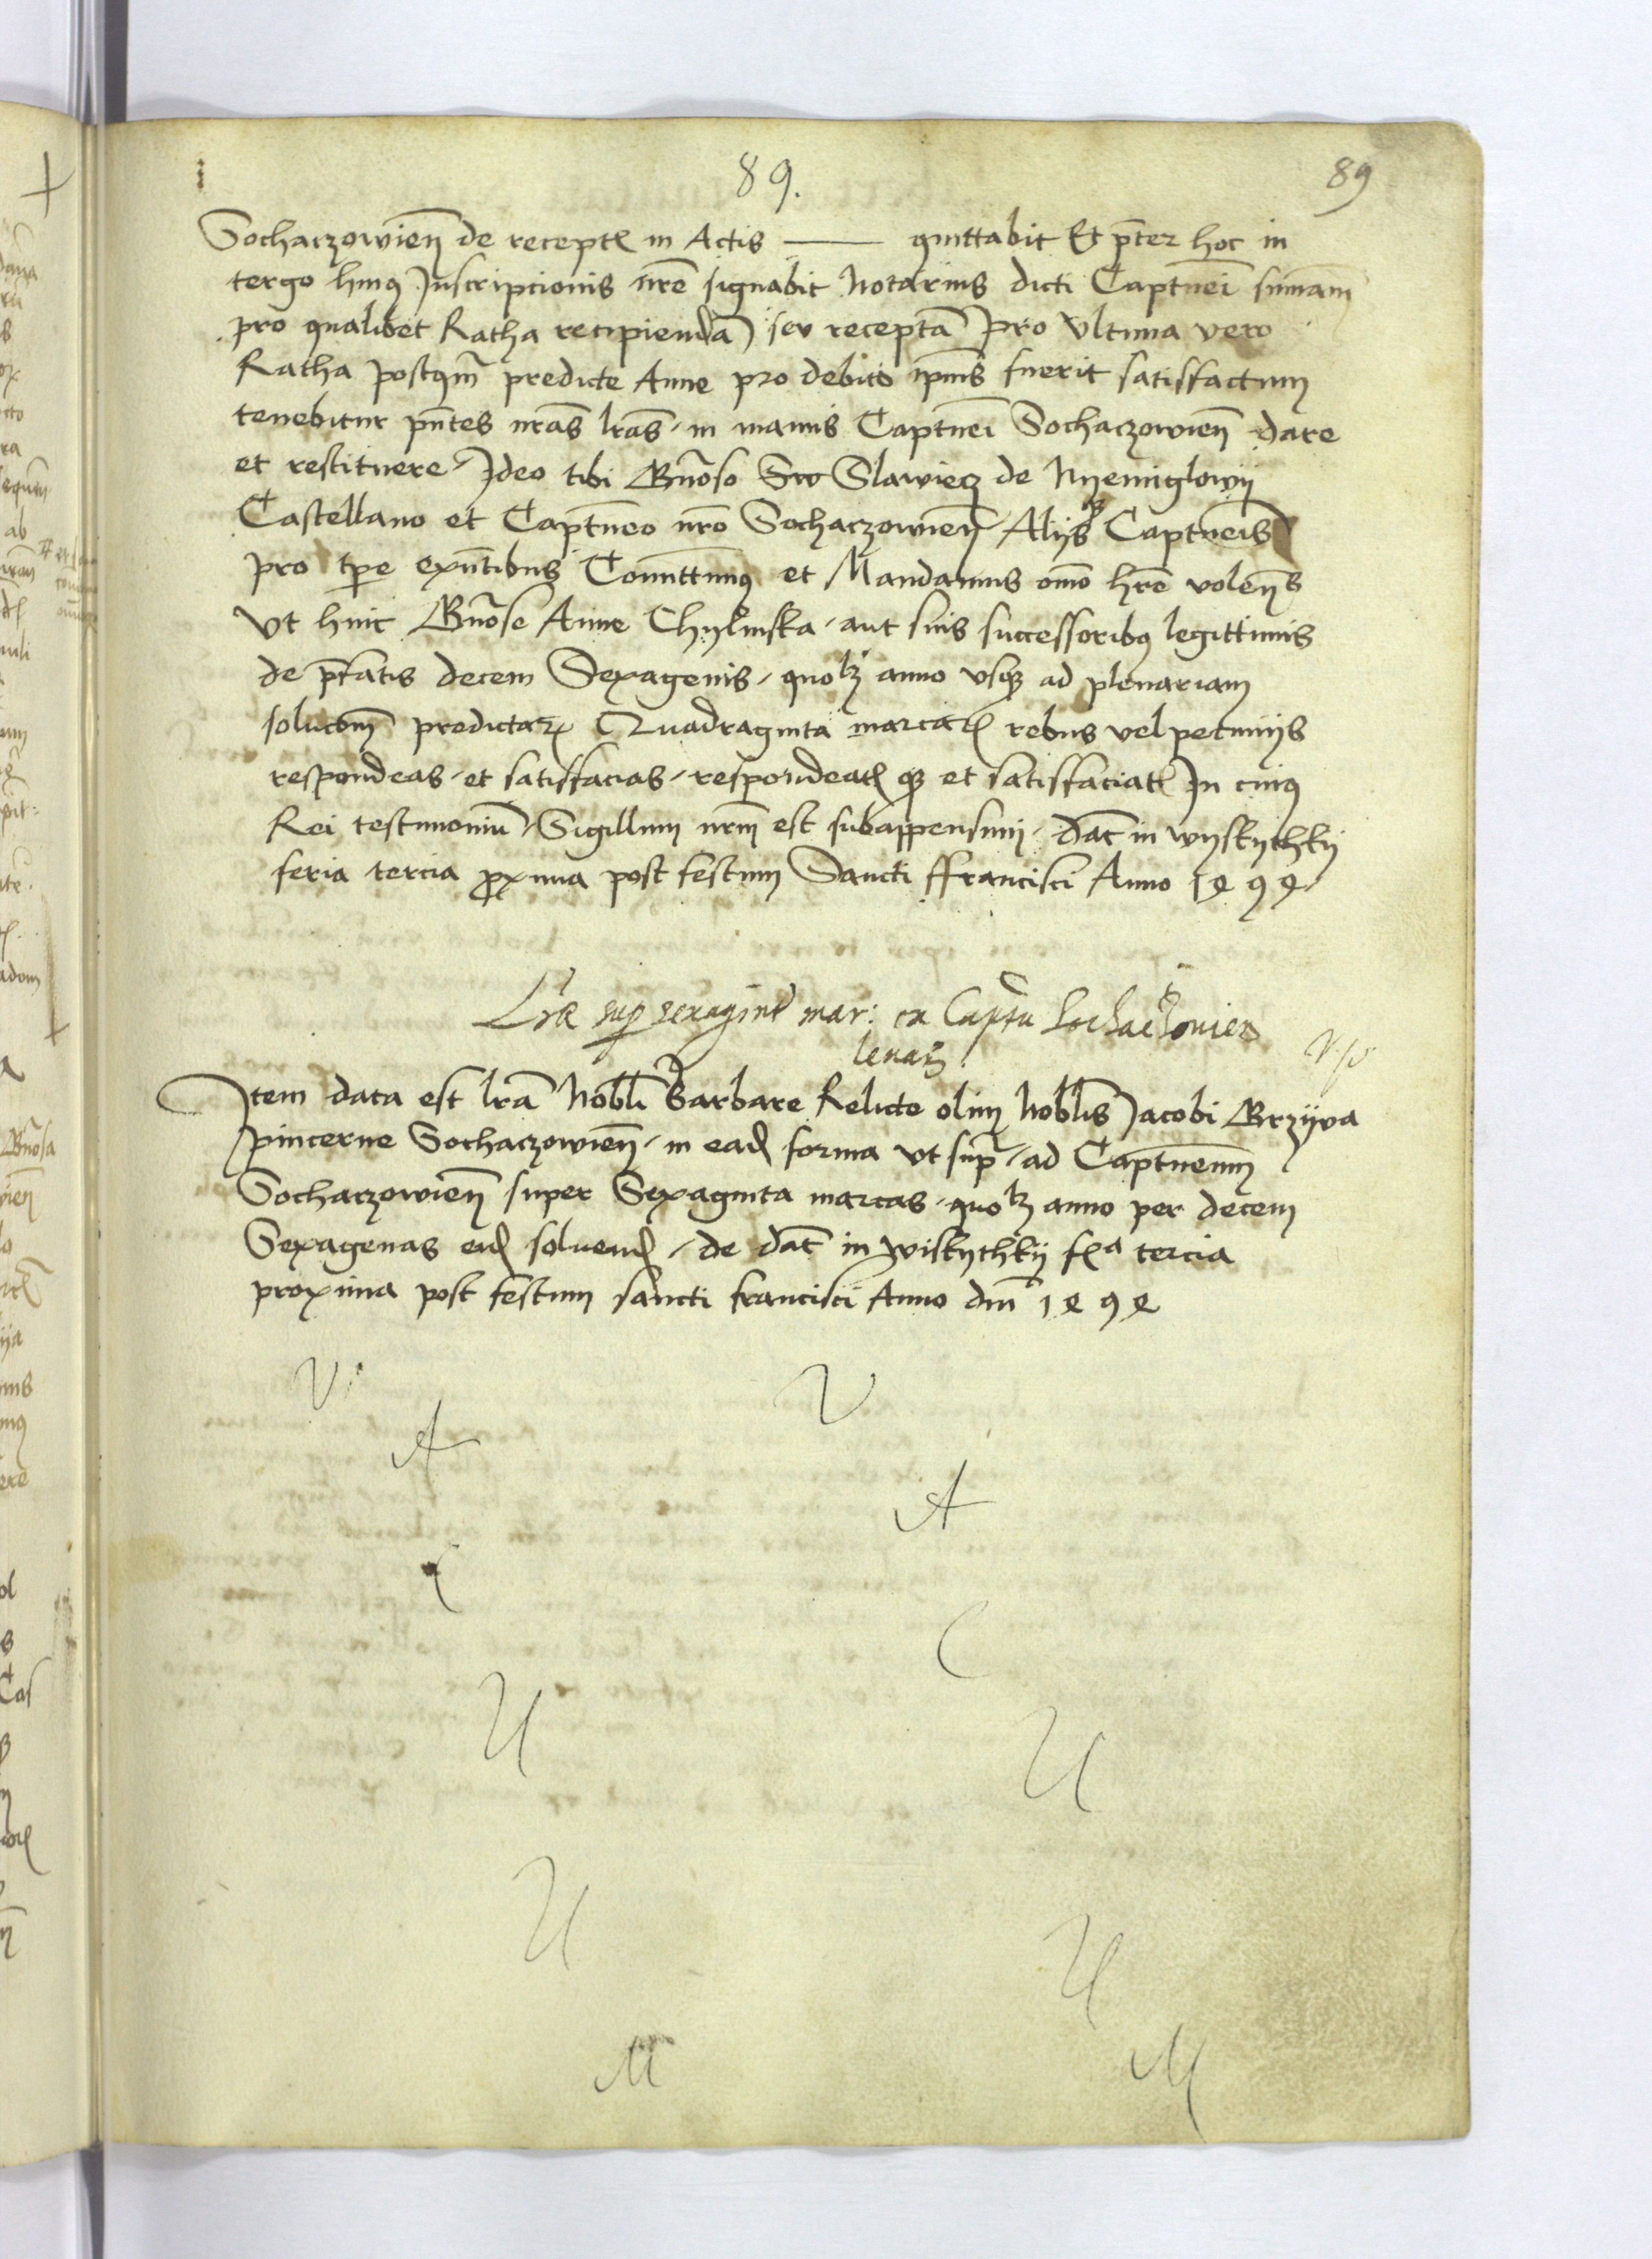 89.
89
Sochaczowien̄ de receptꝭ in Actis —— quittabit Et p̄ter hoc in
tergo huiꝰ Inscripcionis nr̄e signabit Notarius dicti Captn̄ei sum̄am
pro qualibet Ratha recipiendā seu receptā Pro Vltima vero
Ratha postqm̄ predicte Anne pro debito ip̄ius fuerit satisfactum
tenebitur pn̄tes nr̄as lr̄as in manus Captn̄ei Sochaczowien̄ dare
et restituere Ideo tibi Gn̄oso Slawiecz de Nyemiglowy
Castellano et Captn̄eo nr̄o Sochaczowien̄ Alijsqꝫ Captn̄eis
pro tp̄e exn̄tibus Com̄ittimꝰ et Mandamus om̄o hr̄e volen̄s
Vt huic Gn̄ose Anne Chylinska aut suis successoribꝰ legittimis
de pr̄fatis decem Sexagenis quolꝫ anno vsqꝫ ad plenariam
solucōm̄ predictaꝝ Quadraginta marcaꝝ rebus vel pecunijs
respondeas et satisfacias respondeatꝭ qꝫ et satisfaciatꝭ In cuiꝰ
Rei testimoniū Sigillum nrm̄ est subappensum Dat̄ in Wyskythky
feria tercia proxima post festum Sancti ffrancisci Anno 1494
Lr̄æ sup sexagint mar: in Captu Sochaczouien
Item data est lr̄a Nobl̄i Barbare Relicte olim Nobl̄is Jacobi Brzywa
pincerne Sochaczowien̄ in eadꝭ forma vt sup̄ ad Captn̄eum
Sochaczowien̄ super Sexaginta marcas quolꝫ anno per decem
Sexagenas eidꝭ soluendꝭ de dat̄ in Wiskythky fꝭa tercia
proxima post festum sancti francisci Anno dm̄ 1494
V
V
A
A
C
C
U
U
U
U
M
M